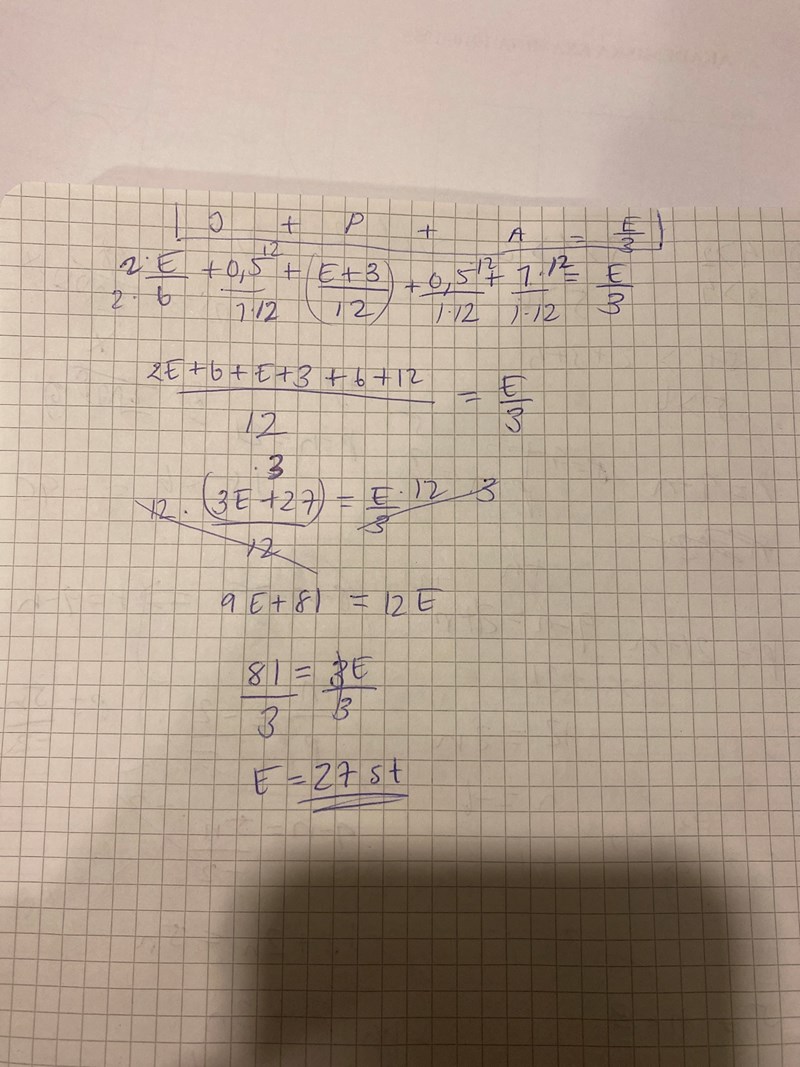 | J + P + A = E/3 |
2·E/2·6 + 0,5·12/1·12 + (E+3/12) + 0,5·12/1·12 + 1·12/1·12 = E/3
2E+6+E+3+6+12/12 = E/3
12·(3E+27)·3/12 = E·12/3 3
9E+81 = 12E
81/3 = 3E/3
E = 27 st